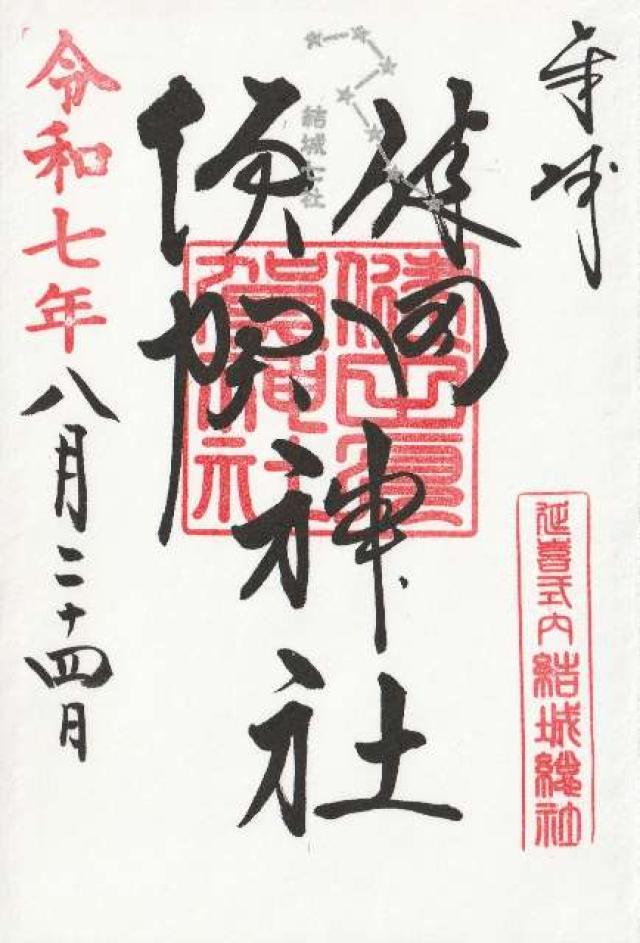 奉拝
延喜式内結城總社
結城七社
健田
須賀
神社
健田須
賀神社
令和七年八月二十四日